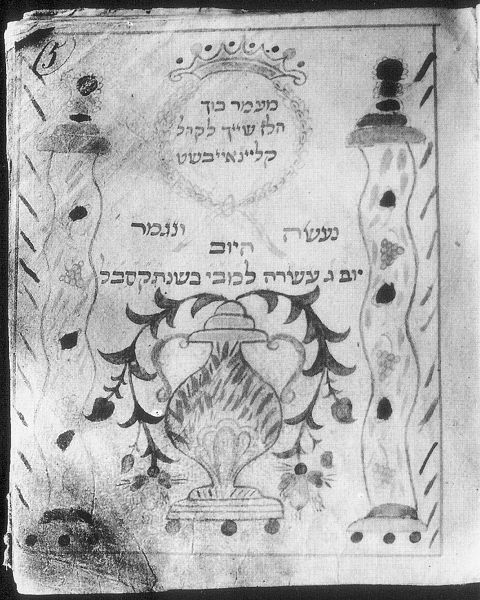 5
מעמר בוך
הלז שייך
קליינאייבשט
נעשה ונגמר
היום
יום ג עשירה למבי בשנת תקסבל